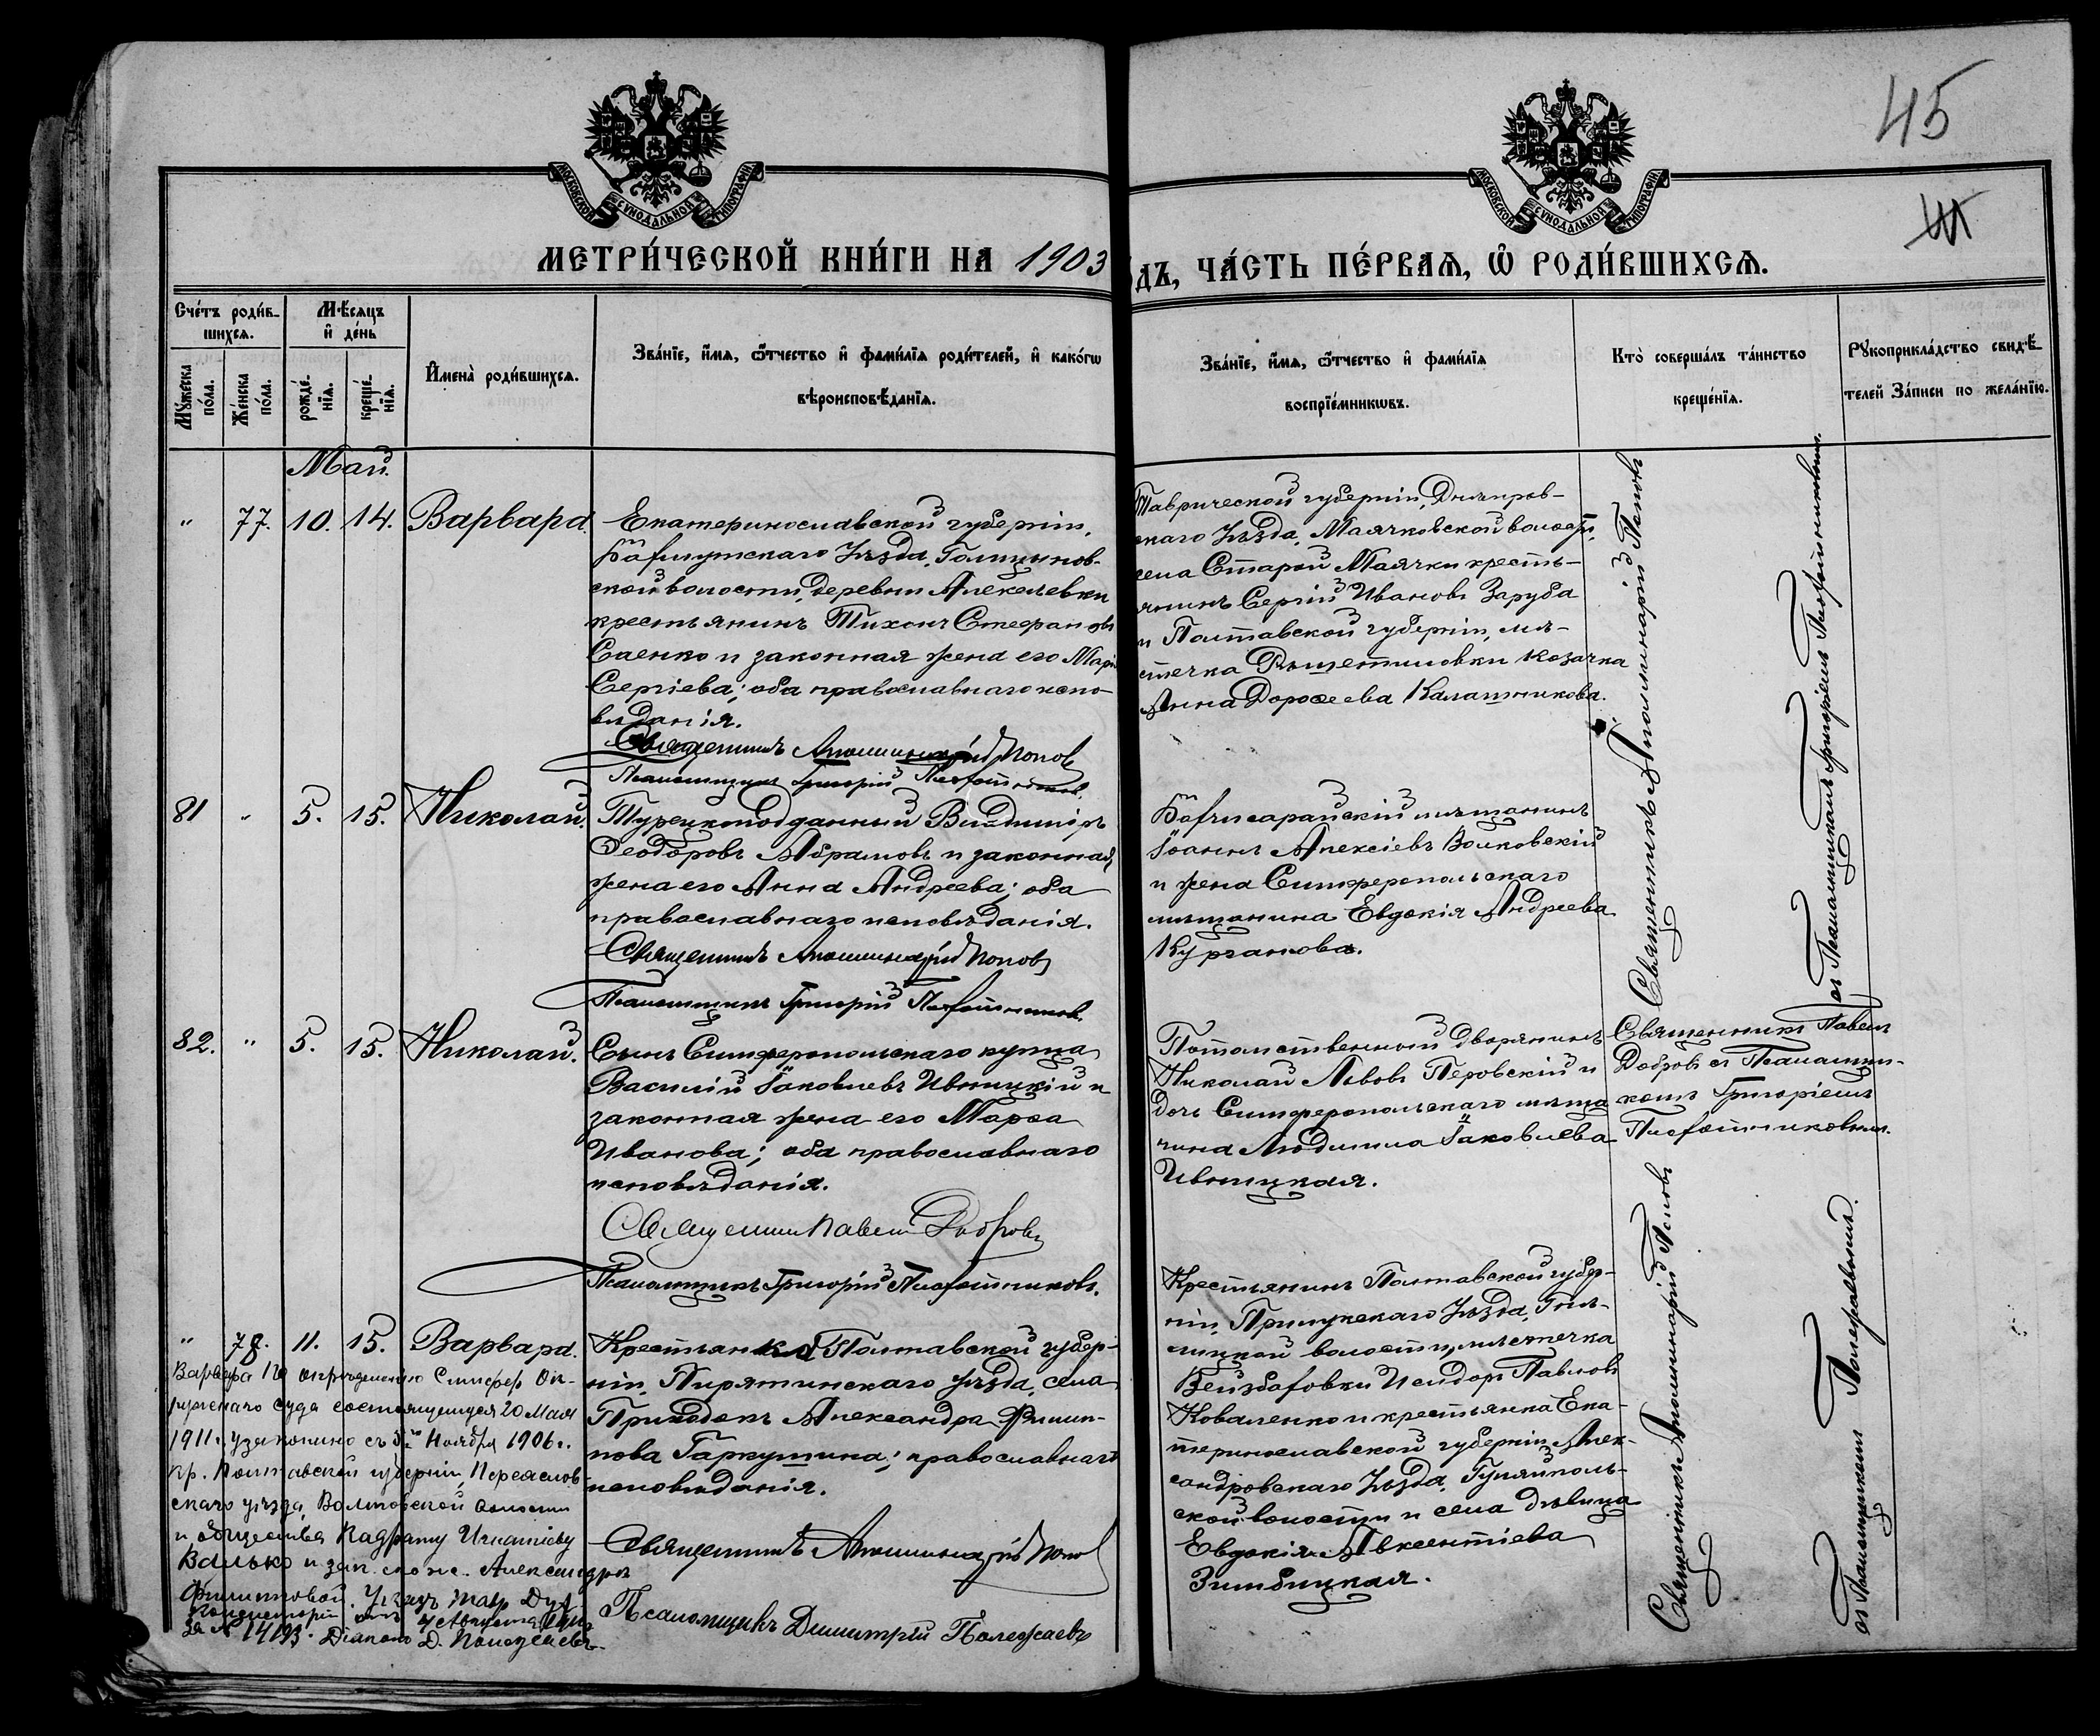 45
МОСКОВСКОЙ СѴНОДАЛЬНОЙ ТИПОГРАФІИ
МОСКОВСКОЙ СѴНОДАЛЬНОЙ ТИПОГРАФІИ
МЕТРИ́ЧЕСКОЙ КНИ́ГИ НА 1903
ОДЪ, ЧА́СТЬ ПЕ́РВАЯ, Ѽ РОДИ́ВШИХСЯ.
Сче́тъ роди́в-
шихся.
Мѣ́сяцъ
и҆ де́нь
Му́жеска по́ла.
Же́нска по́ла.
рожде́-
нїя.
креще́-
нїя.
И҆мена̀ роди́вшихся.
Зва́нїе, и҆́мя, ѻ҆́тчество и҆ фами́лїя роди́телей, и҆ како́гѡ
вѣроисповѣ́данїя.
Зва́нїе, и҆́мя, ѻ҆́тчество и҆ фами́лїя
воспрїе́мникѡвъ.
Кто̀ соверша́лъ та́инство
креще́нїя.
Рꙋкоприкла́дство свидѣ́-
телей За́писи по жела́нїю.
Май.
" 77. 10. 14. Варвара
Екатеринославской губерніи,
Бахмутскаго Уѣзда, Голицынов-
ской волости, деревни Алексѣевки
крестьянинъ Тихонъ Стефановъ
Саенко и законная жена его Марія
Сергіева; оба православнаго испо-
вѣданія.
Священникъ Аполлинарій Попов
Псаломщикъ Григорій Плохотниковъ.
Таврической губерніи, Днѣпров-
скаго Уѣзда, Маячковской волости,
села Старой Маячки кресть-
янинъ Сергій Ивановъ Заруба
и Полтавской губерніи, мѣ-
стечка Рѣшетиловки козачка
Анна Дороѳеева Калашникова.
Священникъ Аполлинарій Поповъ
съ Псаломщикомъ Григоріемъ Плохотниковымъ.
81 " 5. 15. Николай.
Турецкоподданный Владиміръ
Ѳеодоровъ Абрамовъ и законная
жена его Анна Андреева; оба
православнаго исповѣданія.
Священникъ Аполлинарій Поповъ
Псаломщикъ Григорій Плохотниковъ.
Бахчисарайскій мѣщанинъ
Іоаннъ Алексіевъ Волковскій
и жена Симферопольскаго
мѣщанина Евдокія Андреева
Курганова.
82. " 5. 15. Николай.
Сынъ Симферопольскаго купца
Василій Іаковлевъ Ивницкій и
законная жена его Марѳа
Иванова; оба православнаго
исповѣданія.
Священникъ Павелъ Добровъ
Псаломщикъ Григорій Плохотниковъ.
Потомственный дворянинъ
Николай Львовъ Перовскій и
дочь Симферопольскаго мѣща
нина Людмила Іаковлева
Ивницкая.
Священникъ Павелъ
Добровъ съ Псаломщи-
комъ Григоріемъ
Плохотниковымъ.
" 78. 11. 15. Варвара.
Крестьянка Полтавской губер-
ніи, Пирятинскаго Уѣзда, села
Приходекъ Александра Филип-
пова Гаркушина; православнаго
исповѣданія.
Священникъ Аполлинарій Попов
Псаломщикъ Димитрій Полежаевъ
Крестьянинъ Полтавской губер-
ніи, Прилукскаго Уѣзда,
волости, мѣстечка
Исидоръ Павловъ
Коваленко и крестьянка Ека-
теринославской губерніи, Алек-
сандровскаго Уѣзда, Гуляйполь-
ской волости и села дѣвица
Евдокія Авксентіева
Зимбицкая.
Священникъ Аполлинарій Поповъ
съ Псаломщикомъ Полежаевымъ.
Варвара по опредѣленію Симфер. Ок-
ружнаго суда состоявшемуся 20 Мая
1911 г. узаконено съ 5 Ноября 1906 г.
кр. Полтавской губерніи, Переяслов-
скаго уѣзда, общества
и Игнатіеву
Валько и зак. его ж. Александрѣ
Филипповой. Указъ Тавр. Дух.
Консисторіи отъ 4 Августа
за № 14193. Діаконъ Д. Полежаевъ.